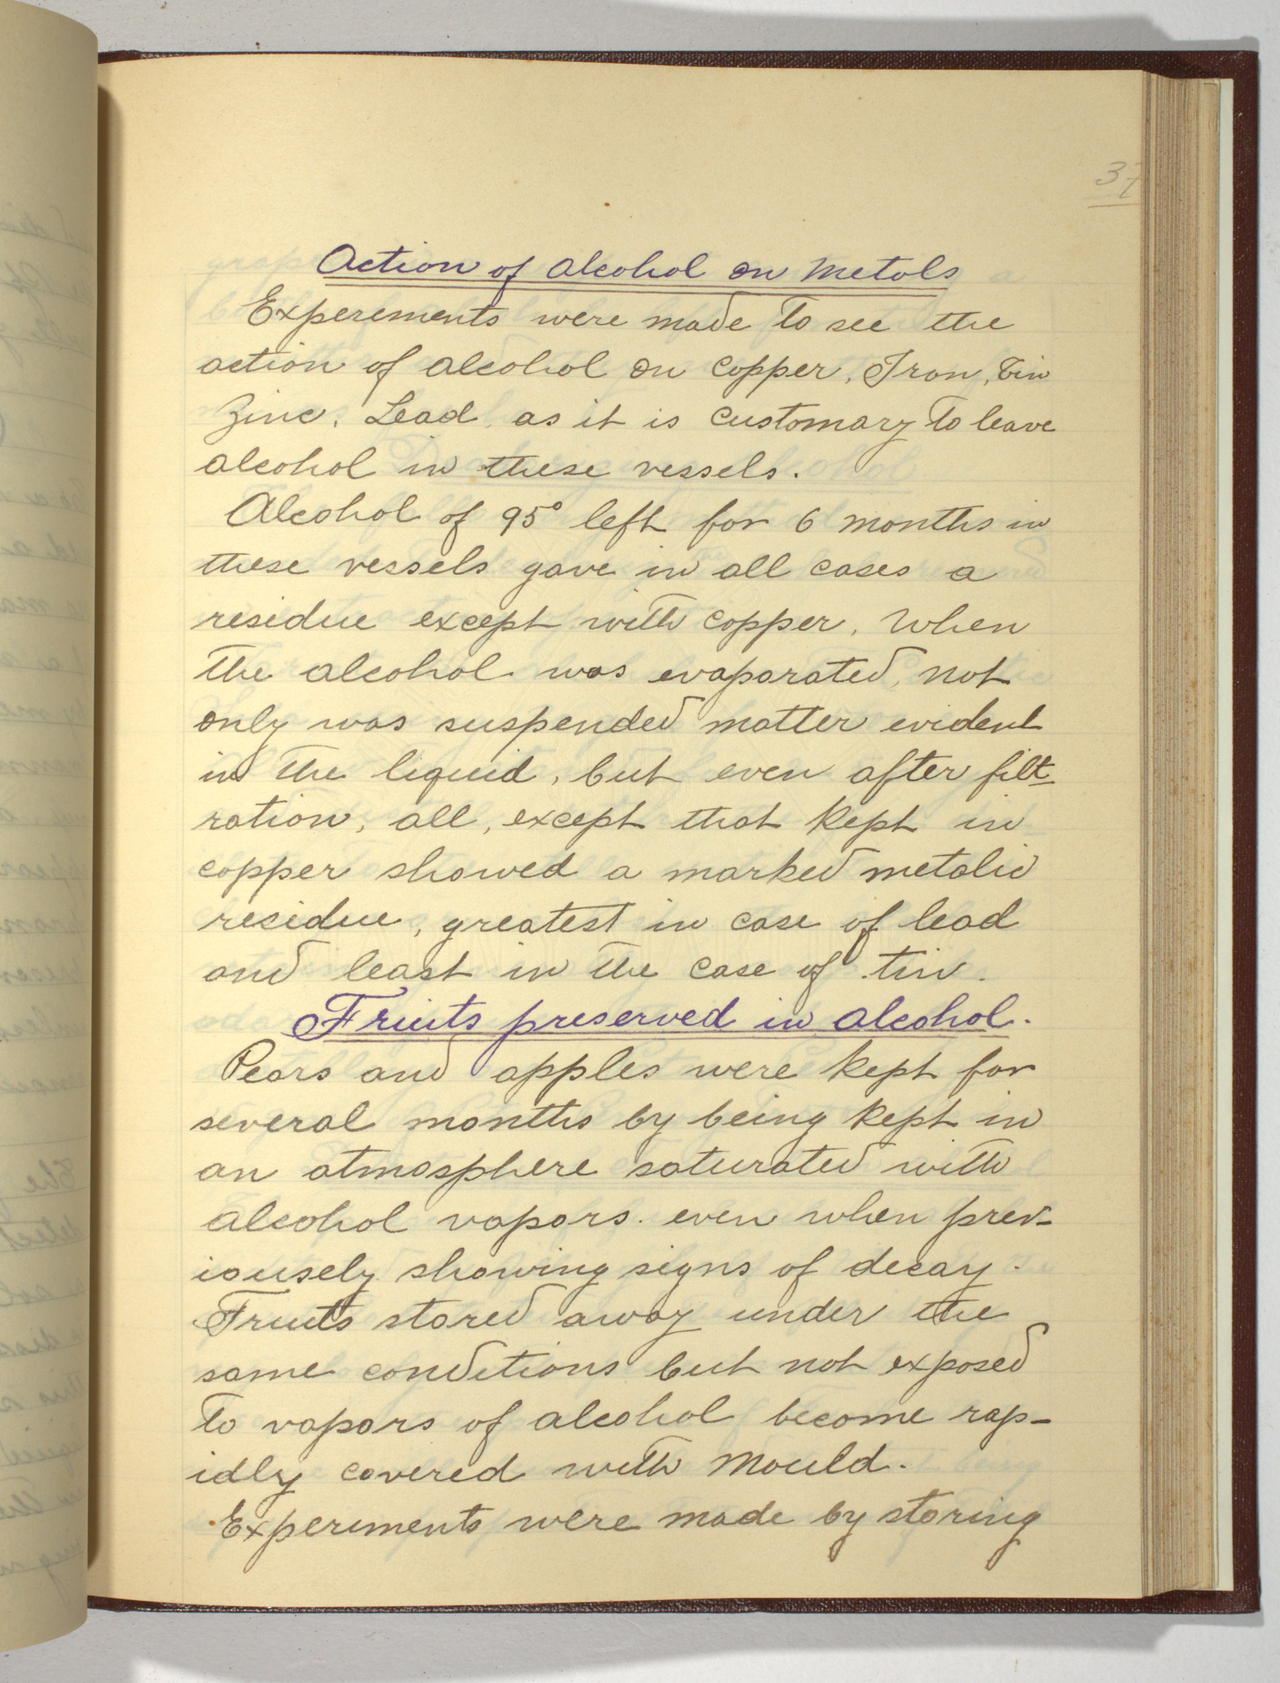 37
Action of Alcohol on Metals
Experements were made to see the
action of alcohol on Copper, Iron, Tin
Zinc, Lead as it is customary to leave
alcohol in these vessels.
Alcohol of 95° left for 6 months in
these vessels gave in all cases a
residue except with copper, when
the alcohol was evaporated, not
only was suspended matter evident
in the liquid, but even after filt-
ration, all, except that kept in
copper showed a marked metalic
residue, greatest in case of lead
and least in the case of tin.
Fruits preserved in alcohol.
Pears and apples were kept for
several months by being kept in
an atmosphere saturated with
alcohol vapors. even when prev-
iousely showing signs of decay.
Fruits stored away under the
same conditions but not exposed
to vapors of alcohol become rap-
idly covered with mould.
Experiments were made by storing